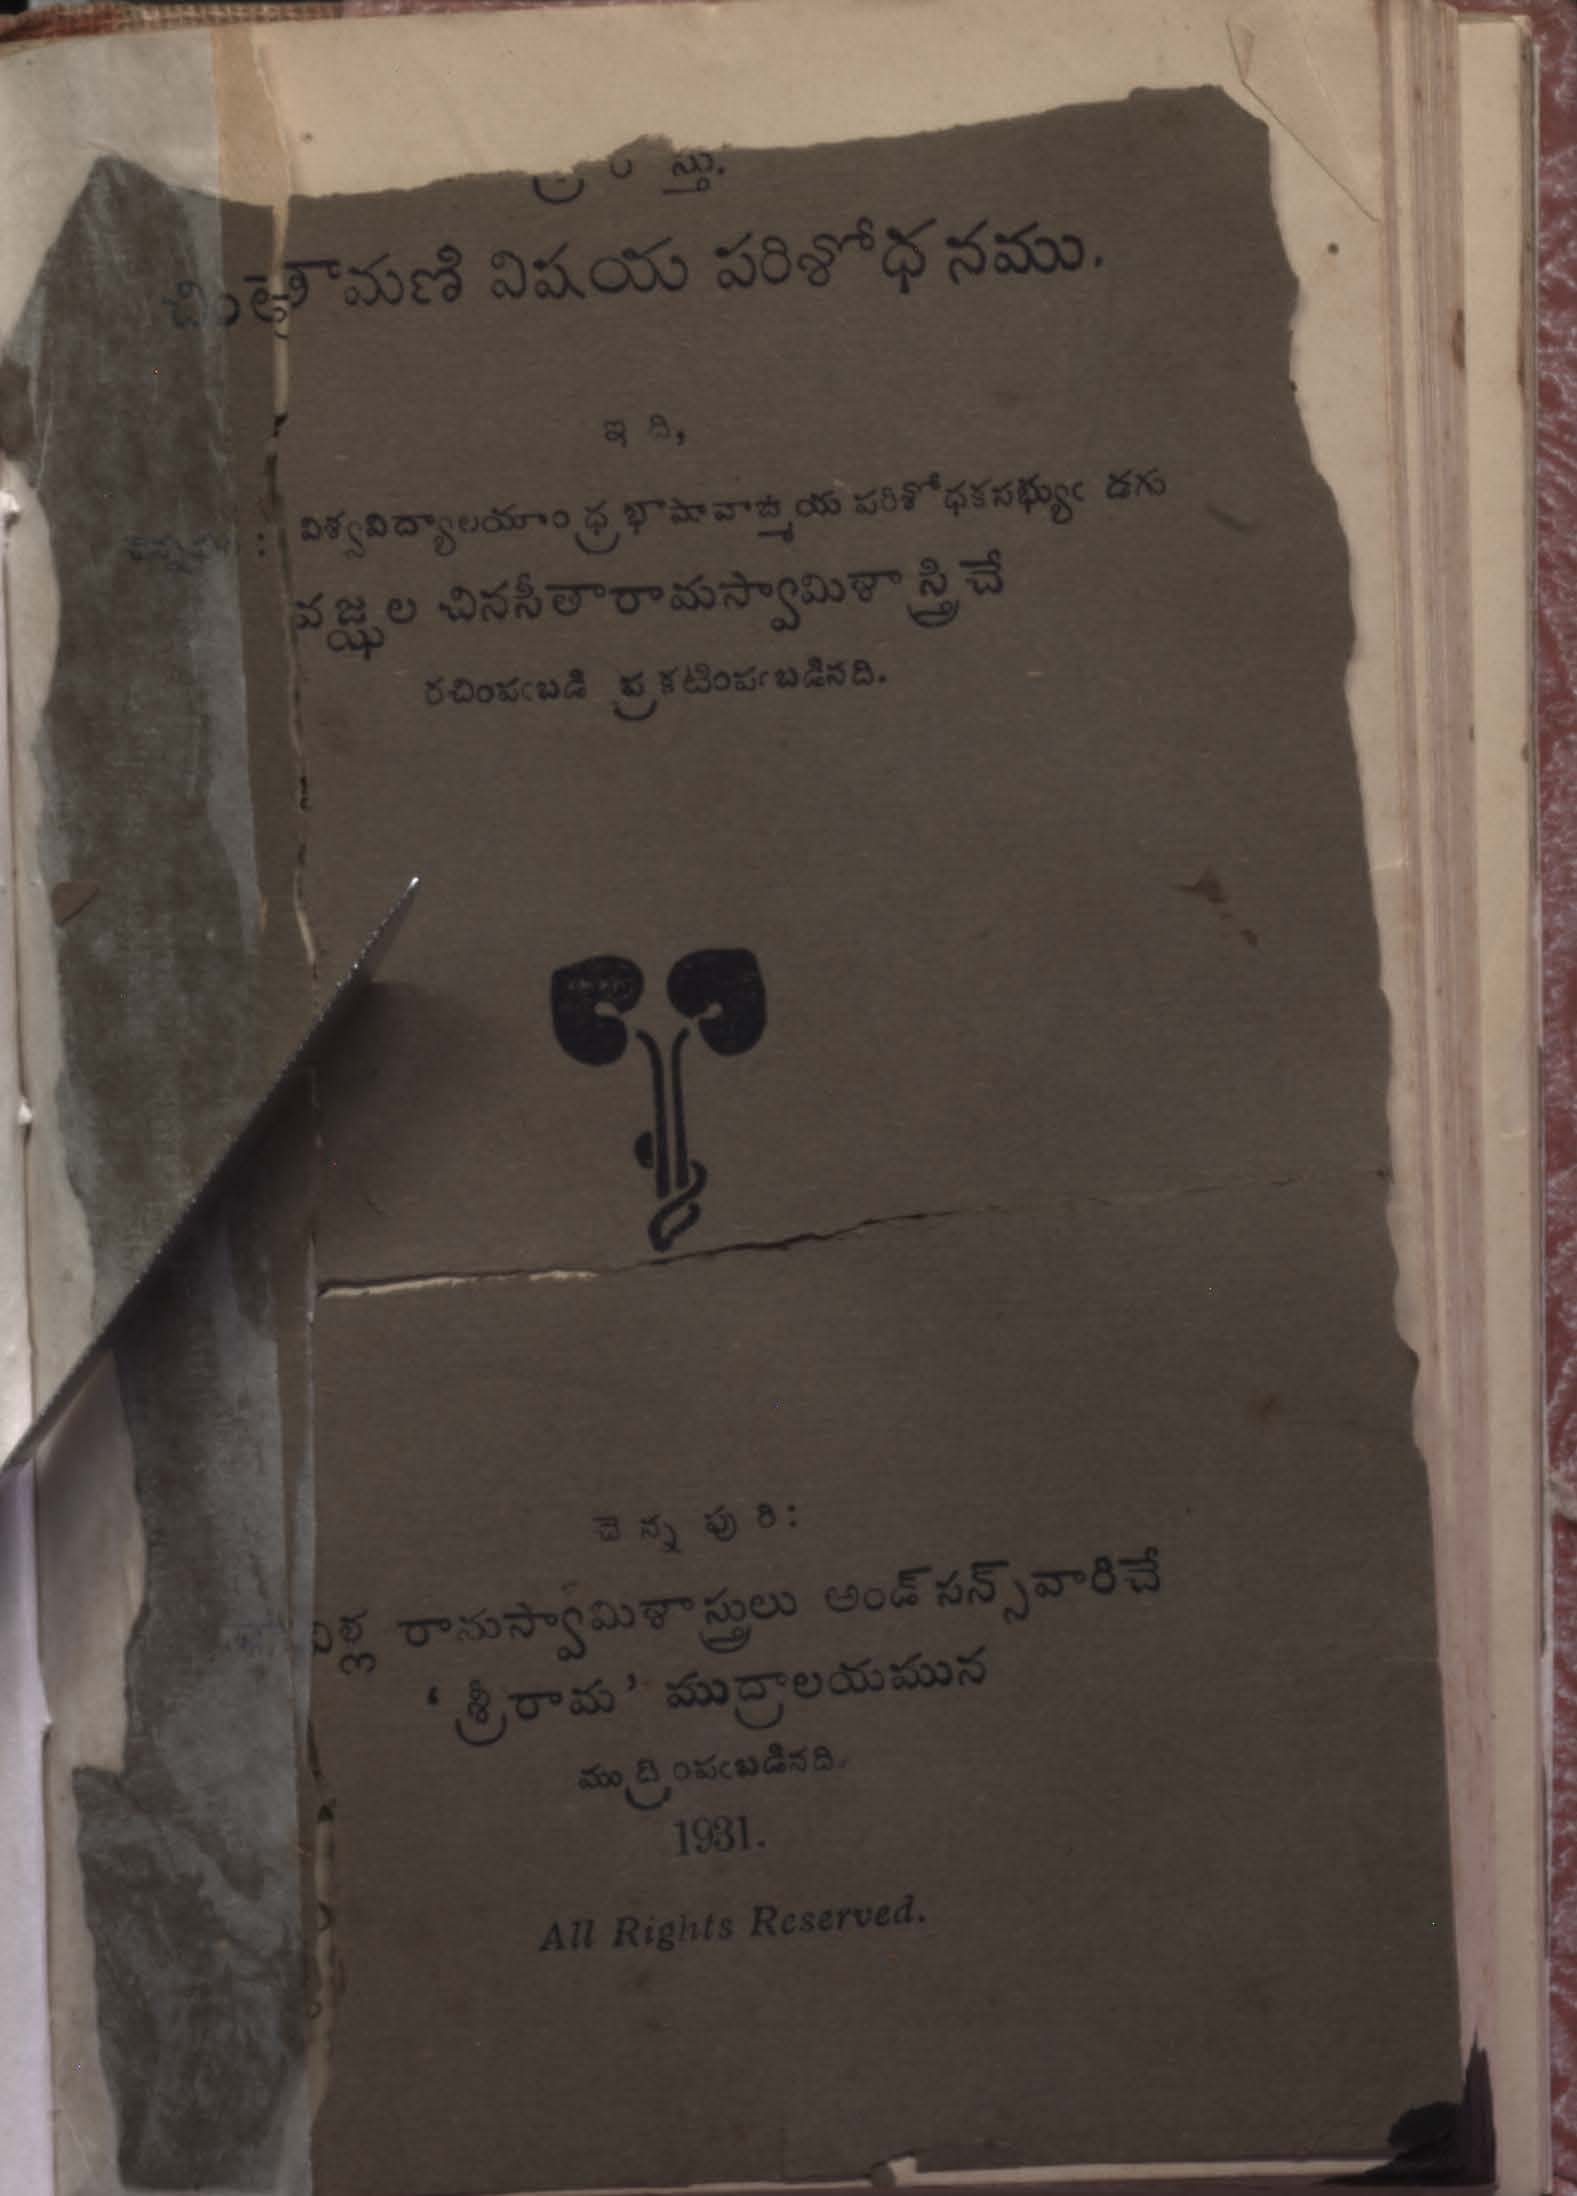 స్తు.
చింతామణి విషయ పరిశోధనము.
ఇ ది,
విశ్వవిద్యాలయాంధ్రభాషావాఙ్మయ పరిశోధకసభ్యుఁ డగు
వజ్ఝల చినసీతారామస్వామిశాస్త్రిచే
రచింపఁబడి ప్రకటింపఁబడినది.
చె న్న పు రి:
విళ్ల రామస్వామిశాస్త్రులు అండ్ సన్స్‌వారిచే
‘శ్రీరామ’ ముద్రాలయమున
ముద్రింపఁబడినది.
1931.
All Rights Reserved.